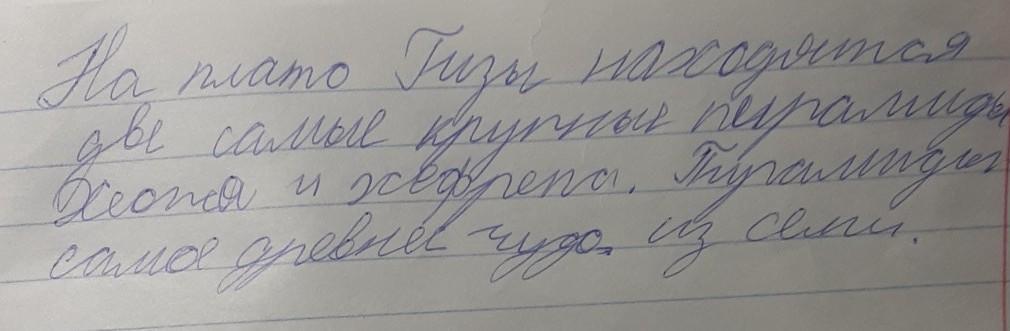 На плато Гизы находятся
две самые крупные пирамиды
Хеопса и хефрена. Пирамиды
самое древнее чудо из семи.